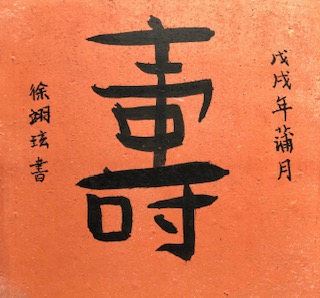 戊戌年蒲月
壽
徐翊玹書